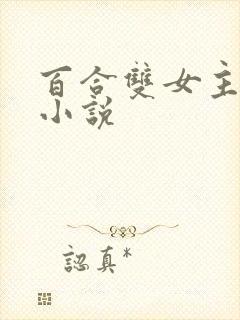 百合雙女主
小說
認真*